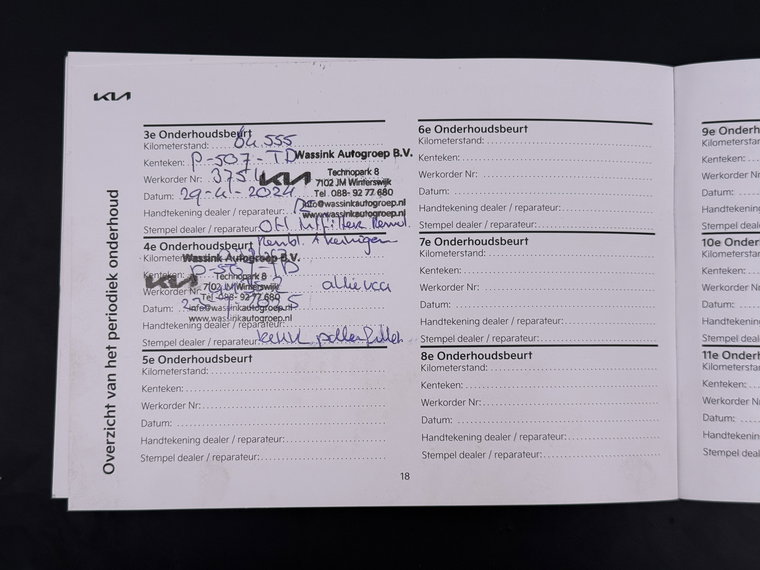 KIA
Overzicht van het periodiek onderhoud
3e Onderhoudsbeurt
Kilometerstand: 64.555
Kenteken: P-507-TD
Werkorder Nr: 3751
Datum: 29-4-2024
Handtekening dealer / reparateur:
Stempel dealer / reparateur:
Wassink Autogroep B.V.
KIA
Technopark 8
7102 JM Winterswijk
Tel. 088- 92 77 680
info@wassinkautogroep.nl
www.wassinkautogroep.nl
4e Onderhoudsbeurt
Kilometerstand:
Kenteken: P-507-TD
Werkorder Nr:
Datum:
Handtekening dealer / reparateur:
Stempel dealer / reparateur: pollenfilter
Wassink Autogroep B.V.
KIA
Technopark 8
7102 JM Winterswijk
Tel. 088- 92 77 680
info@wassinkautogroep.nl
www.wassinkautogroep.nl
5e Onderhoudsbeurt
Kilometerstand:
Kenteken:
Werkorder Nr:
Datum:
Handtekening dealer / reparateur:
Stempel dealer / reparateur:
6e Onderhoudsbeurt
Kilometerstand:
Kenteken:
Werkorder Nr:
Datum:
Handtekening dealer / reparateur:
Stempel dealer / reparateur:
7e Onderhoudsbeurt
Kilometerstand:
Kenteken:
Werkorder Nr:
Datum:
Handtekening dealer / reparateur:
Stempel dealer / reparateur:
8e Onderhoudsbeurt
Kilometerstand:
Kenteken:
Werkorder Nr:
Datum:
Handtekening dealer / reparateur:
Stempel dealer / reparateur:
18
9e Onderh
Kilometersta
Kenteken:
Werkorder N
Datum:
Handtekenin
Stempel deal
10e Onder
Kilometersta
Kenteken:
Werkorder N
Datum:
Handtekenin
Stempel deal
11e Onderh
Kilometersta
Kenteken:
Werkorder Nr
Datum:
Handtekenin
Stempel deal